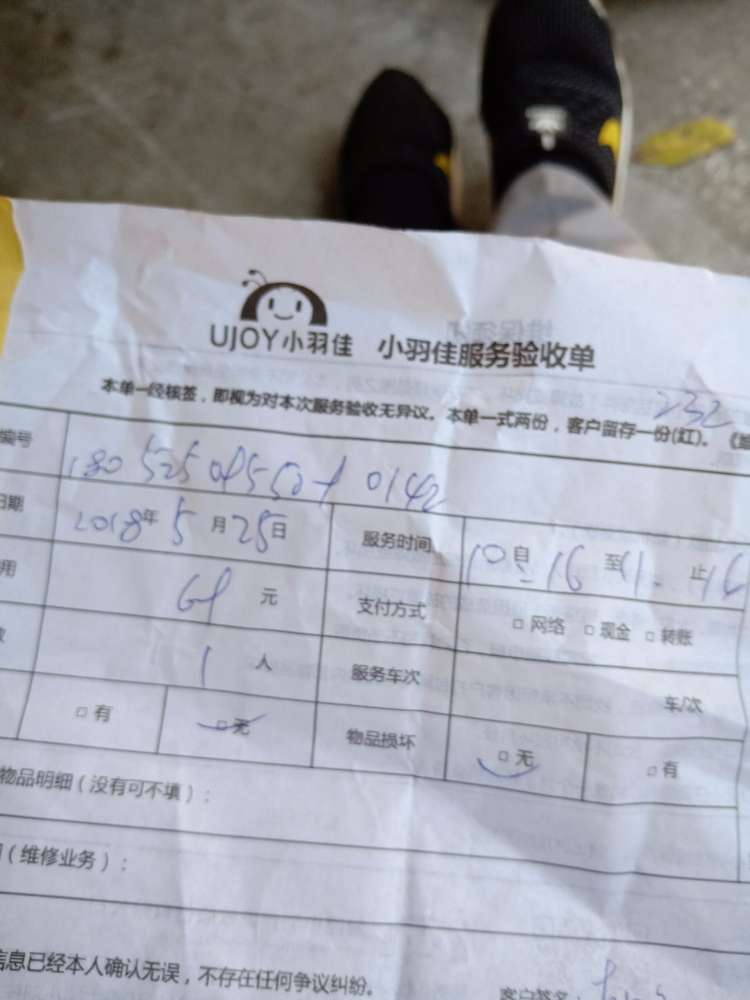 UJOY小羽佳 小羽佳服务验收单
232
本单一经核签，即视为对本次服务验收无异议。本单一式两份，客户留存一份(红)。《
编号
日期 2018年 5月25日 服务时间 10自16 至11 止16
用 元 支付方式 □网络 □现金 □转账
数 1 人 服务车次 车/次
□有 □无 物品损坏 □无 □有
物品明细（没有可不填）：
（维修业务）：
信息已经本人确认无误，不存在任何争议纠纷。
客户签名：